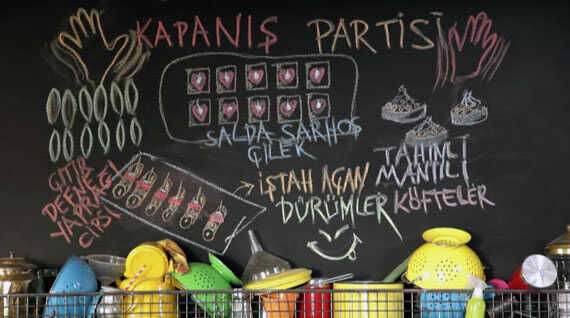 KAPANIŞ PARTİSİ
SALDA SARHOŞ
ÇİLEK
ÇITIR
DEFNE
YAPRAĞI
CİPSİ
İŞTAH AÇAN
DÜRÜMLER
TAHİNLİ
MANTILI
KÖFTELER